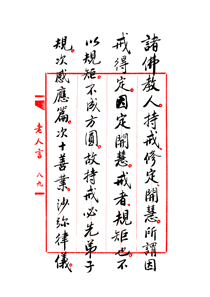 諸佛教人持戒修定開慧所謂因
戒得定因定開慧戒者規矩也不
以規矩不成方圓故持戒必先弟子
規次感應篇次十善業沙弥律儀
老人言 八九